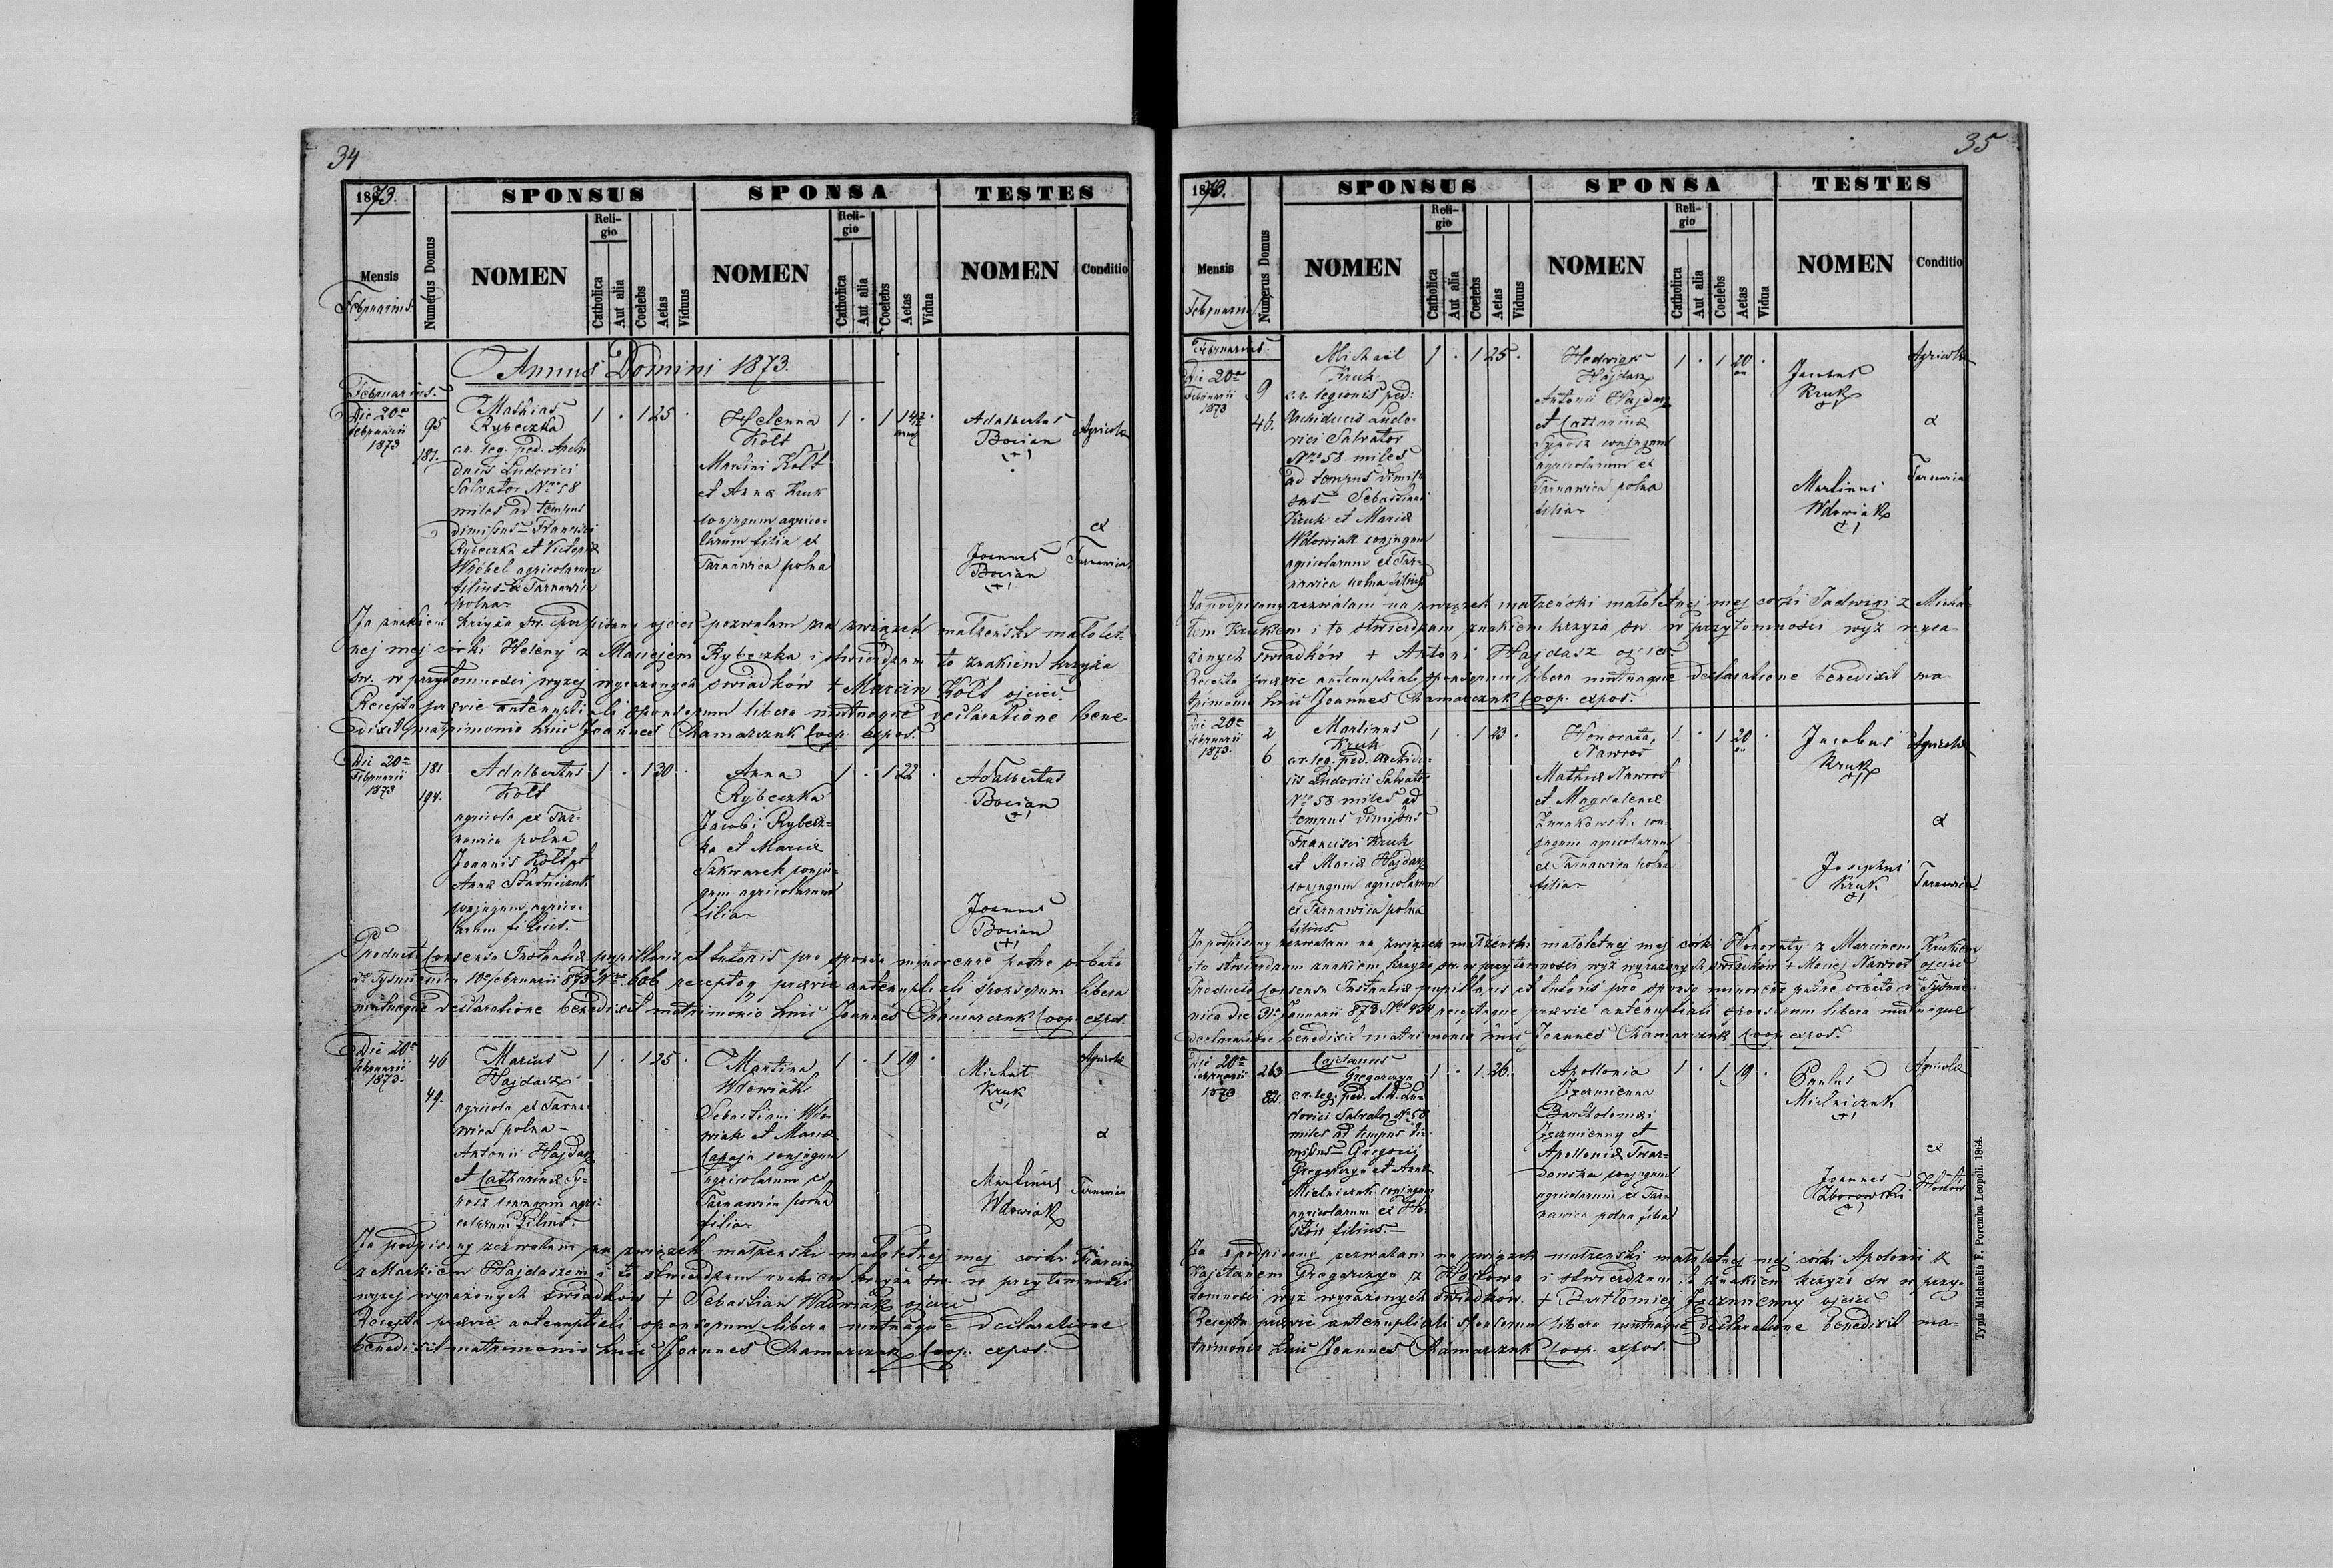 34
1873.
SPONSUS
SPONSA
TESTES
Mensis
Februarius.
Numerus Domus
NOMEN
Religio
Catholica
Aut alia
Coelebs
Aetas
Viduus
NOMEN
Religio
Catholica
Aut alia
Coelebs
Aetas
Vidua
NOMEN
Conditio
Annus Domini 1873.
Februarius.
Die 20a
Februarii
1873
95
181.
Mathias
Rybeczka
c.r. leg. ped. Archi
ducis Ludovici
Salvator Nro 58
miles ad tempus
dimissus Francisci
Rybeczka et Victoriæ
Wróbel agricolarum
filius ex Tarnawica
polna
1 . 1 25 .
Helenna
Kołt
Martini Kołt
et Anna Kruk
conjugum agrico-
larum filia ex
Tarnawica polna
1 . 1
Adalbertus
Bocian
(+)
Joannes
Bocian
(+)
Agricolæ
ex
Tarnawica
Ja znakiem krzyża św. podpisany ojciec pozwalam na związek małżeński małolet-
niej mej córki Heleny z Maciejem Rybeczka i stwierdzam to znakiem krzyża
św. w przytomności wyżej wyrażonych świadków + Marcin Kołt ojciec
Recepta prævie antenuptiali sponsorum libera mutuaque declaratione bene-
dixit matrimonio huic Joannes Chamarczuk Coop. expos.
Die 20a
Februarii
1873
181
194.
Adalbertus
Kołt
agricola ex Tar-
nawica polna
Joannis Kołt et
Anna
conjugum agrico-
larum filius.
1 . 1 30 .
Anna
Rybeczka
Jacobi Rybecz-
ka et Mariæ
Szkwarek conju-
gum agricolarum
filia
1 . 1 22 .
Adalbertus
Bocian
(+)
Joannes
Bocian
(+)
Producto Consensu Instantiæ pupillaris et tutoris pro sponsa minorenne patre orbata
de Tysmienica 10 Februarii 873 Nro 606 recepta prævie antenuptiali sponsorum libera
mutuaque declaratione benedixit matrimonio huic Joannes Chamarczuk Coop. expos.
Die 20a
Februarii
1873.
46
49.
Marcus
Hajdasz
agricola ex Tarna-
wica polna
Antonii Hajdasz
et Catharinæ Sy-
posz conjugum agri-
colarum filius.
1 . 1 25 .
Martina
Wdowiak
Sebastiani Wdo-
wiak et Mariæ
Capaja conjugum
agricolarum ex
Tarnawica polna
filia
1 . 1 19 .
Michał
Kruk
(+)
Martinus
Wdowiak
Agricolæ
ex
Tarnawica
Ja podpisany zezwalam na związek małżeński małoletniej mej córki Marciny
z Markiem Hajdaszem i to stwierdzam znakiem krzyża św. w przytomności
wyżej wyrażonych świadków + Sebastian Wdowiak ojciec
Recepta prævie antenuptiali sponsorum libera mutuaque declaratione
benedixit matrimonio huic Joannes Chamarczuk Coop. expos.
35
1873.
SPONSUS
SPONSA
TESTES
Mensis
Februarius
Numerus Domus
NOMEN
Religio
Catholica
Aut alia
Coelebs
Aetas
Viduus
NOMEN
Religio
Catholica
Aut alia
Coelebs
Aetas
Vidua
NOMEN
Conditio
Februarius.
Die 20a
Februarii
1873
9
46.
Michaël
Kruk
c.r. legionis ped:
Archiducis Ludo-
vici Salvator
Nro 58 miles
ad tempus dimis-
sus Sebastiani
Kruk et Mariæ
Wdowiak conjugum
agricolarum ex Tar-
nawica polna filius
1 . 1 25 .
Hedwigis
Hajdasz
Antonii Hajdasz
et Catharinæ
Syposz conjugum
agricolarum ex
Tarnawica polna
filia
1 . 1 20 .
Jacobus
Kruk
(+)
Martinus
Wdowiak
(+)
Agricolæ
ex
Tarnawica
Ja podpisany zezwalam na związek małżeński małoletniej mej córki Jadwigi z Micha-
łem Krukiem i to stwierdzam znakiem krzyża św. w przytomności wyż wyra-
żonych świadków + Antoni Hajdasz ojciec
Recepta prævie antenuptiali sponsorum libera mutuaque declaratione benedixit ma-
trimonio huic Joannes Chamarczuk Coop. expos.
Die 20a
Februarii
1873.
2
6
Martinus
Kruk
c.r. leg. ped. Archidu-
cis Ludovici Salvator
Nro 58 miles ad
tempus dimissus
Francisci Kruk
et Mariæ Hajdasz
conjugum agricolarum
ex Tarnawica polna
filius
1 . 1 23 .
Honorata
Nawrot
Mathiæ Nawrot
et Magdalenæ
Żurakowski con-
jugum agricolarum
ex Tarnawica polna
filia
1 . 1 20 .
Jacobus
Kruk
(+)
Josephus
Kruk
(+)
Agricolæ
ex
Tarnawica
Ja podpisany zezwalam na związek małżeński małoletniej mej córki Honoraty z Marcinem Krukiem
i to stwierdzam znakiem krzyża św. w przytomności wyż wyrażonych świadków + Maciej Nawrot ojciec
Producto Consensu Instantiæ pupillaris et tutoris pro sponso minorene patre orbato de Tysmie-
nica die Januarii 873 Nro 434 receptaque prævie antenuptiali sponsorum libera mutuaque
declaratione benedixit matrimonio huic Joannes Chamarczuk Coop. expos.
Die 20a
Februarii
1873
263
82.
Cajetanus
Gregorczyn
c.r. leg. ped. A.D. Lu-
dovici Salvator Nro 58
miles ad tempus di-
missus Gregorii
Gregorczyn et Anna
Mielniczuk conjugum
agricolarum ex Ho-
stów filius.
1 . 1 26 .
Apollonia
Jęczmienna
Bartholomæi
Jęczmienny et
Apolloniæ Twar-
dowska conjugum
agricolarum ex Tar-
nawica polna filia
1 . 1 19 .
Paulus
Mielniczuk
(+)
Joannes
Zborowski
(+)
Agricolæ
ex
Hostów
Ja podpisany zezwalam na związek małżeński małoletniej mej córki Apolonii z
Kajetanem Gregorczyn z Hostowa i stwierdzam to znakiem krzyża św w przy-
tomności wyż wyrażonych świadków. + Bartłomiej Jęczmienny ojciec
Recepta prævie antenuptiali sponsorum libera mutuaque declaratione benedixit ma-
trimonio huic Joannes Chamarczuk Coop. expos.
Typis Michaelis F. Poremba Leopoli. 1864.